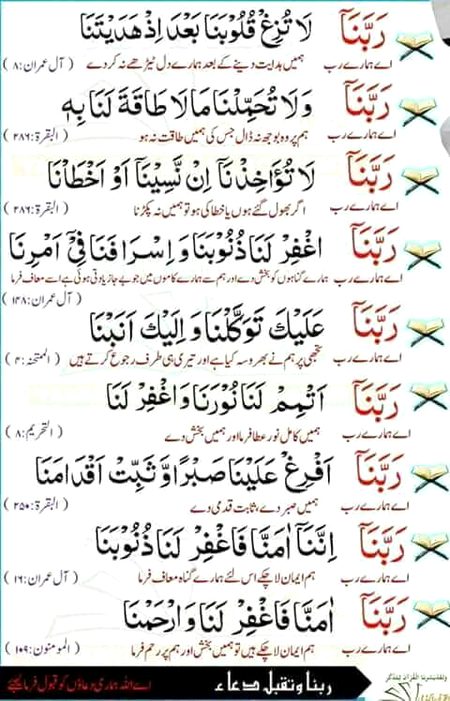 رَبَّنَآ لَا تُزِغْ قُلُوْبَنَا بَعْدَ اِذْ هَدَيْتَنَا
اے ہمارے رب ہمیں ہدایت دینے کے بعد ہمارے دل ٹیڑھے نہ کر دے (آل عمران:۸)
رَبَّنَآ وَلَا تُحَمِّلْنَا مَا لَا طَاقَةَ لَنَا بِهٖ
اے ہمارے رب ہم پر وہ بوجھ نہ ڈال جس کی ہمیں طاقت نہ ہو (البقرة:۲۸۶)
رَبَّنَآ لَا تُؤَاخِذْنَآ اِنْ نَّسِيْنَآ اَوْ اَخْطَاْنَا
اے ہمارے رب اگر بھول گئے ہوں یا خطا کی ہو تو ہمیں نہ پکڑنا (البقرة:۲۸۶)
رَبَّنَآ اغْفِرْ لَنَا ذُنُوْبَنَا وَ اِسْرَافَنَا فِيْٓ اَمْرِنَا
اے ہمارے رب ہمارے گناہوں کو بخش دے اور ہم سے ہمارے کاموں میں جو بے جا زیادتی ہوئی ہے اسے معاف فرما
(آل عمران:۱۴۸)
رَبَّنَآ عَلَيْكَ تَوَكَّلْنَا وَ اِلَيْكَ اَنَبْنَا
اے ہمارے رب تجھی پر ہم نے بھروسہ کیا ہے اور تیری ہی طرف رجوع کرتے ہیں (الممتحنة:۴)
رَبَّنَآ اَتْمِمْ لَنَا نُوْرَنَا وَ اغْفِرْ لَنَا
اے ہمارے رب ہمیں کامل نور عطا فرما اور ہمیں بخش دے (التحريم:۸)
رَبَّنَآ اَفْرِغْ عَلَيْنَا صَبْرًا وَّ ثَبِّتْ اَقْدَامَنَا
اے ہمارے رب ہمیں صبر دے، ثابت قدمی دے (البقرة:۲۵۰)
رَبَّنَآ اِنَّنَآ اٰمَنَّا فَاغْفِرْ لَنَا ذُنُوْبَنَا
اے ہمارے رب ہم ایمان لا چکے اس لئے ہمارے گناہ معاف فرما (آل عمران:۱۶)
رَبَّنَآ اٰمَنَّا فَاغْفِرْ لَنَا وَ ارْحَمْنَا
اے ہمارے رب ہم ایمان لا چکے ہیں تو ہمیں بخش اور ہم پر رحم فرما (المومنون:۱۰۹)
ربنا وتقبل دعاء اے اللہ ہماری دعاؤں کو قبول فرما لیجئے